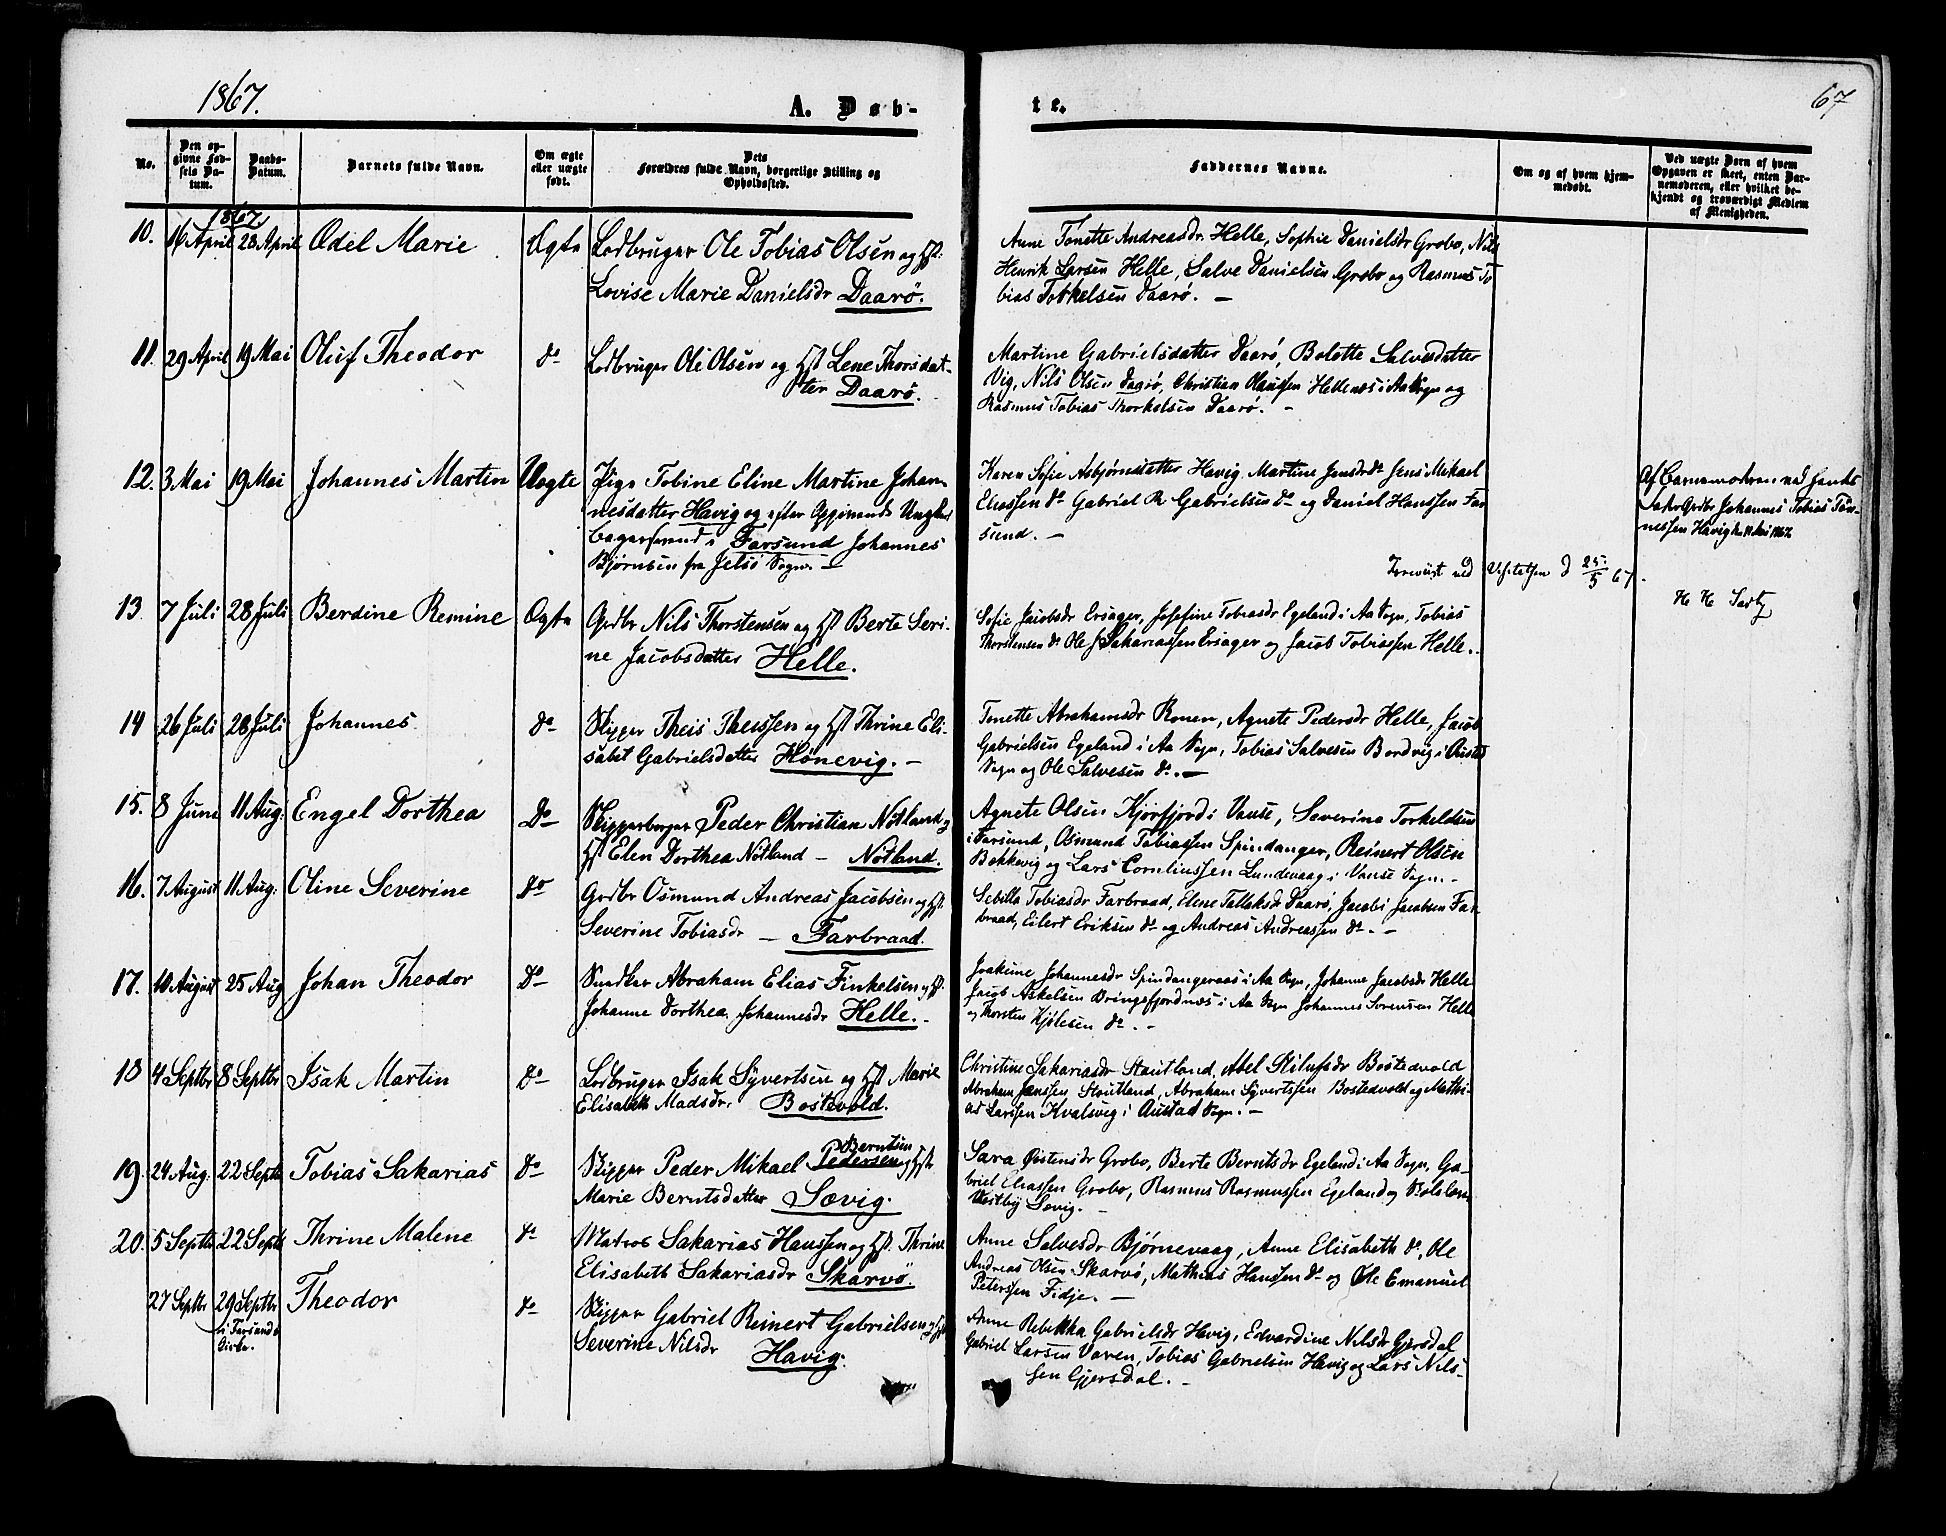 1867.
A. Døb-
te.
67
No.
Den op-
givne Fød-
sels Da-
tum.
Daabs-
Datum.
Barnets fulde Navn.
Om ægte
eller uægte
født.
Dets
Forældres fulde Navn, borgerlige Stilling og
Opholdssted.
Faddernes Navne.
Om og af hvem hjem-
medøbt.
Ved uægte Børn af hvem
Opgaven er skeet, enten Bar-
nemoderen, eller hvilket be-
kjendt og troværdigt Medlem
af Menigheden.
1867
10. 16 April 28 April Ædel Marie Ægte Lodbruger Ole Tobias Olsen og Hst.
Lovise Marie Danielsdr Daarø.
Anne Tonette Andreasdr. Helle, Sophie Danielsdr Grobo, Nils
Henrik Larsen Helle, Salve Danielsen Grobo og Rasmus To
bias Torkelsen Daarø. —
11. 29 April 19 Mai Oluf Theodor do Lodbruger Ole Olsen og Hst Lene Thorsdat-
ter Daarø.
Martine Gabrielsdatter Daarø, Bolette Salvesdatter
Vig, Nils Olsen Daarø, Christian Olaussen Hellenes i Aa Sogn og
Rasmus Tobias Thorkelsen Daarø. —
12. 3 Mai 19 Mai Johannes Martin Uægte Pige Tobine Eline Martine Johan-
nesdatter Havig og efter Opgivende Ungkarl
Bagersvend i Farsund Johannes
Bjørnsen fra Jelsø Sogn. —
Karen Sofie Asbjørnsdatter Havig, Martine Jensdr do Jens Mikael
Eliassen do Gabriel R Gabrielsen do og Daniel Hanssen Far
sund. —
Af Barnemoderen ved hendes
Fader Grdbr Johannes Tobias Tøn-
nessen Havig d. 11 Mai 1867.
Foreviist ved Visitatsen d 25/5 67.
13. 7 Juli 28 Juli Berdine Remine Ægte Grdbr Nils Thorstensen og Hst Berte Seri-
ne Jacobsdatter Helle.
Sofie Jacobsdr Ersager, Josefine Tobiasdr Egeland i Aa Sogn, Tobias
Thorstensen do Ole J Sakariassen Ersager og Jacob Tobiassen Helle.
14 26 Juli 28 Juli Johannes do Skipper Theis Theissen og Hst Thrine Eli-
sabet Gabrielsdatter Hønevig. —
Tonette Abrahamsdr Ronen, Agnete Pedersdr Helle, Jacob
Gabrielsen Egeland i Aa Sogn, Tobias Salvesen Bordvig i Austad
Sogn og Ole Salvesen do. —
15. 8 Juni 11 Aug: Engel Dorthea Do Skipperborger Peder Christian Nøtland og
Hst Elen Dorthea Nøtland — Nøtland.
Agnete Olsen Kjørfjord i Vanse, Saverine Torkeldsen
i Farsund, Osmund Tobiassen Spindanger, Reinert Olsen
Bekkevig og Lars Corneliussen Lundevaag i Vanse Sogn. —
16. 7 August 11 Aug: Oline Severine do Grdbr Osmund Andreas Jacobsen og Hst.
Severine Tobiasdr — Farbraad.
Sebilla Tobiasdr Farbraad, Elene Tallaksdr Daarø, Jacob Jacobsen Far-
braad, Eilert Eriksen do og Andreas Andreassen do. —
17. 10 August 25 Aug Johan Theodor Do Snedker Abraham Elias Finkelsen og Hst.
Johanne Dorthea Johannesdr Helle. —
Joakime Johannesdr Spindangeraas i Aa Sogn, Johanne Jacobsdr Helle
Jacob Askelsen Bringsfjordnæs i Aa Sogn Johannes Sørensen Helle
og Thorsten Kjølesen do. —
18 4 Septbr 8 Septbr Isak Martin Do Lodbruger Isak Syvertsen og Hst Marie
Elisabeth Madsdr. Bostevold.
Christine Sakariasdr Stautland, Abel Stilufsdr Bostedvold
Abraham Janssen Stoutland, Abraham Syvertssen Bostedvold og Mathi-
as Larssen Kvalsvig i Austad Sogn. —
19. 24 Aug: 22 Septbr Tobias Sakarias do Skipper Peder Mikael Pedersen Berntsen og Hst.
Marie Berntsdatter Søvig.
Sara Østensdr Grobo, Berte Berntsdr Egeland i Aa Sogn, Ga-
briel Eliassen Grobo, Rasmus Rasmussen Egeland og
Vestby Søvig. —
20. 5 Septbr 22 Septbr Thrine Malene do Matros Sakarias Hanssen og Hst. Thrine
Elisabeth Sakariasdr Skarvø.
Anne Salvesdr Bjørnevaag, Anne Elisabeth do, Ole
Andreas Olsen Skarvø, Mathias Hanssen do og Ole Emanuel
Peterssen Fidje. —
27 Septbr 29 Septbr Theodor do Skipper Gabriel Reinert Gabrielsen og Hst
i Farsunds
Kirke.
Severine Nilsdr Havig.
Anne Rebekka Gabrielsdr Havig, Edvardine Nilsdr Gjersdal
Gabriel Larsen Varen, Tobias Gabrielsen Havig og Lars Nils-
sen Gjersdal. —